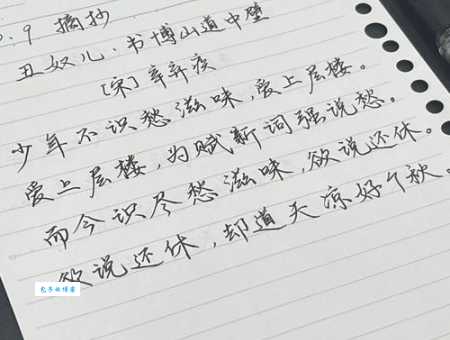 .9 摘抄
丑奴儿·书博山道中壁
[宋]辛弃疾
少年不识愁滋味,爱上层楼。
爱上层楼,为赋新词强说愁。
而今识尽愁滋味,欲说还休。
欲说还休,却道天凉好个秋。